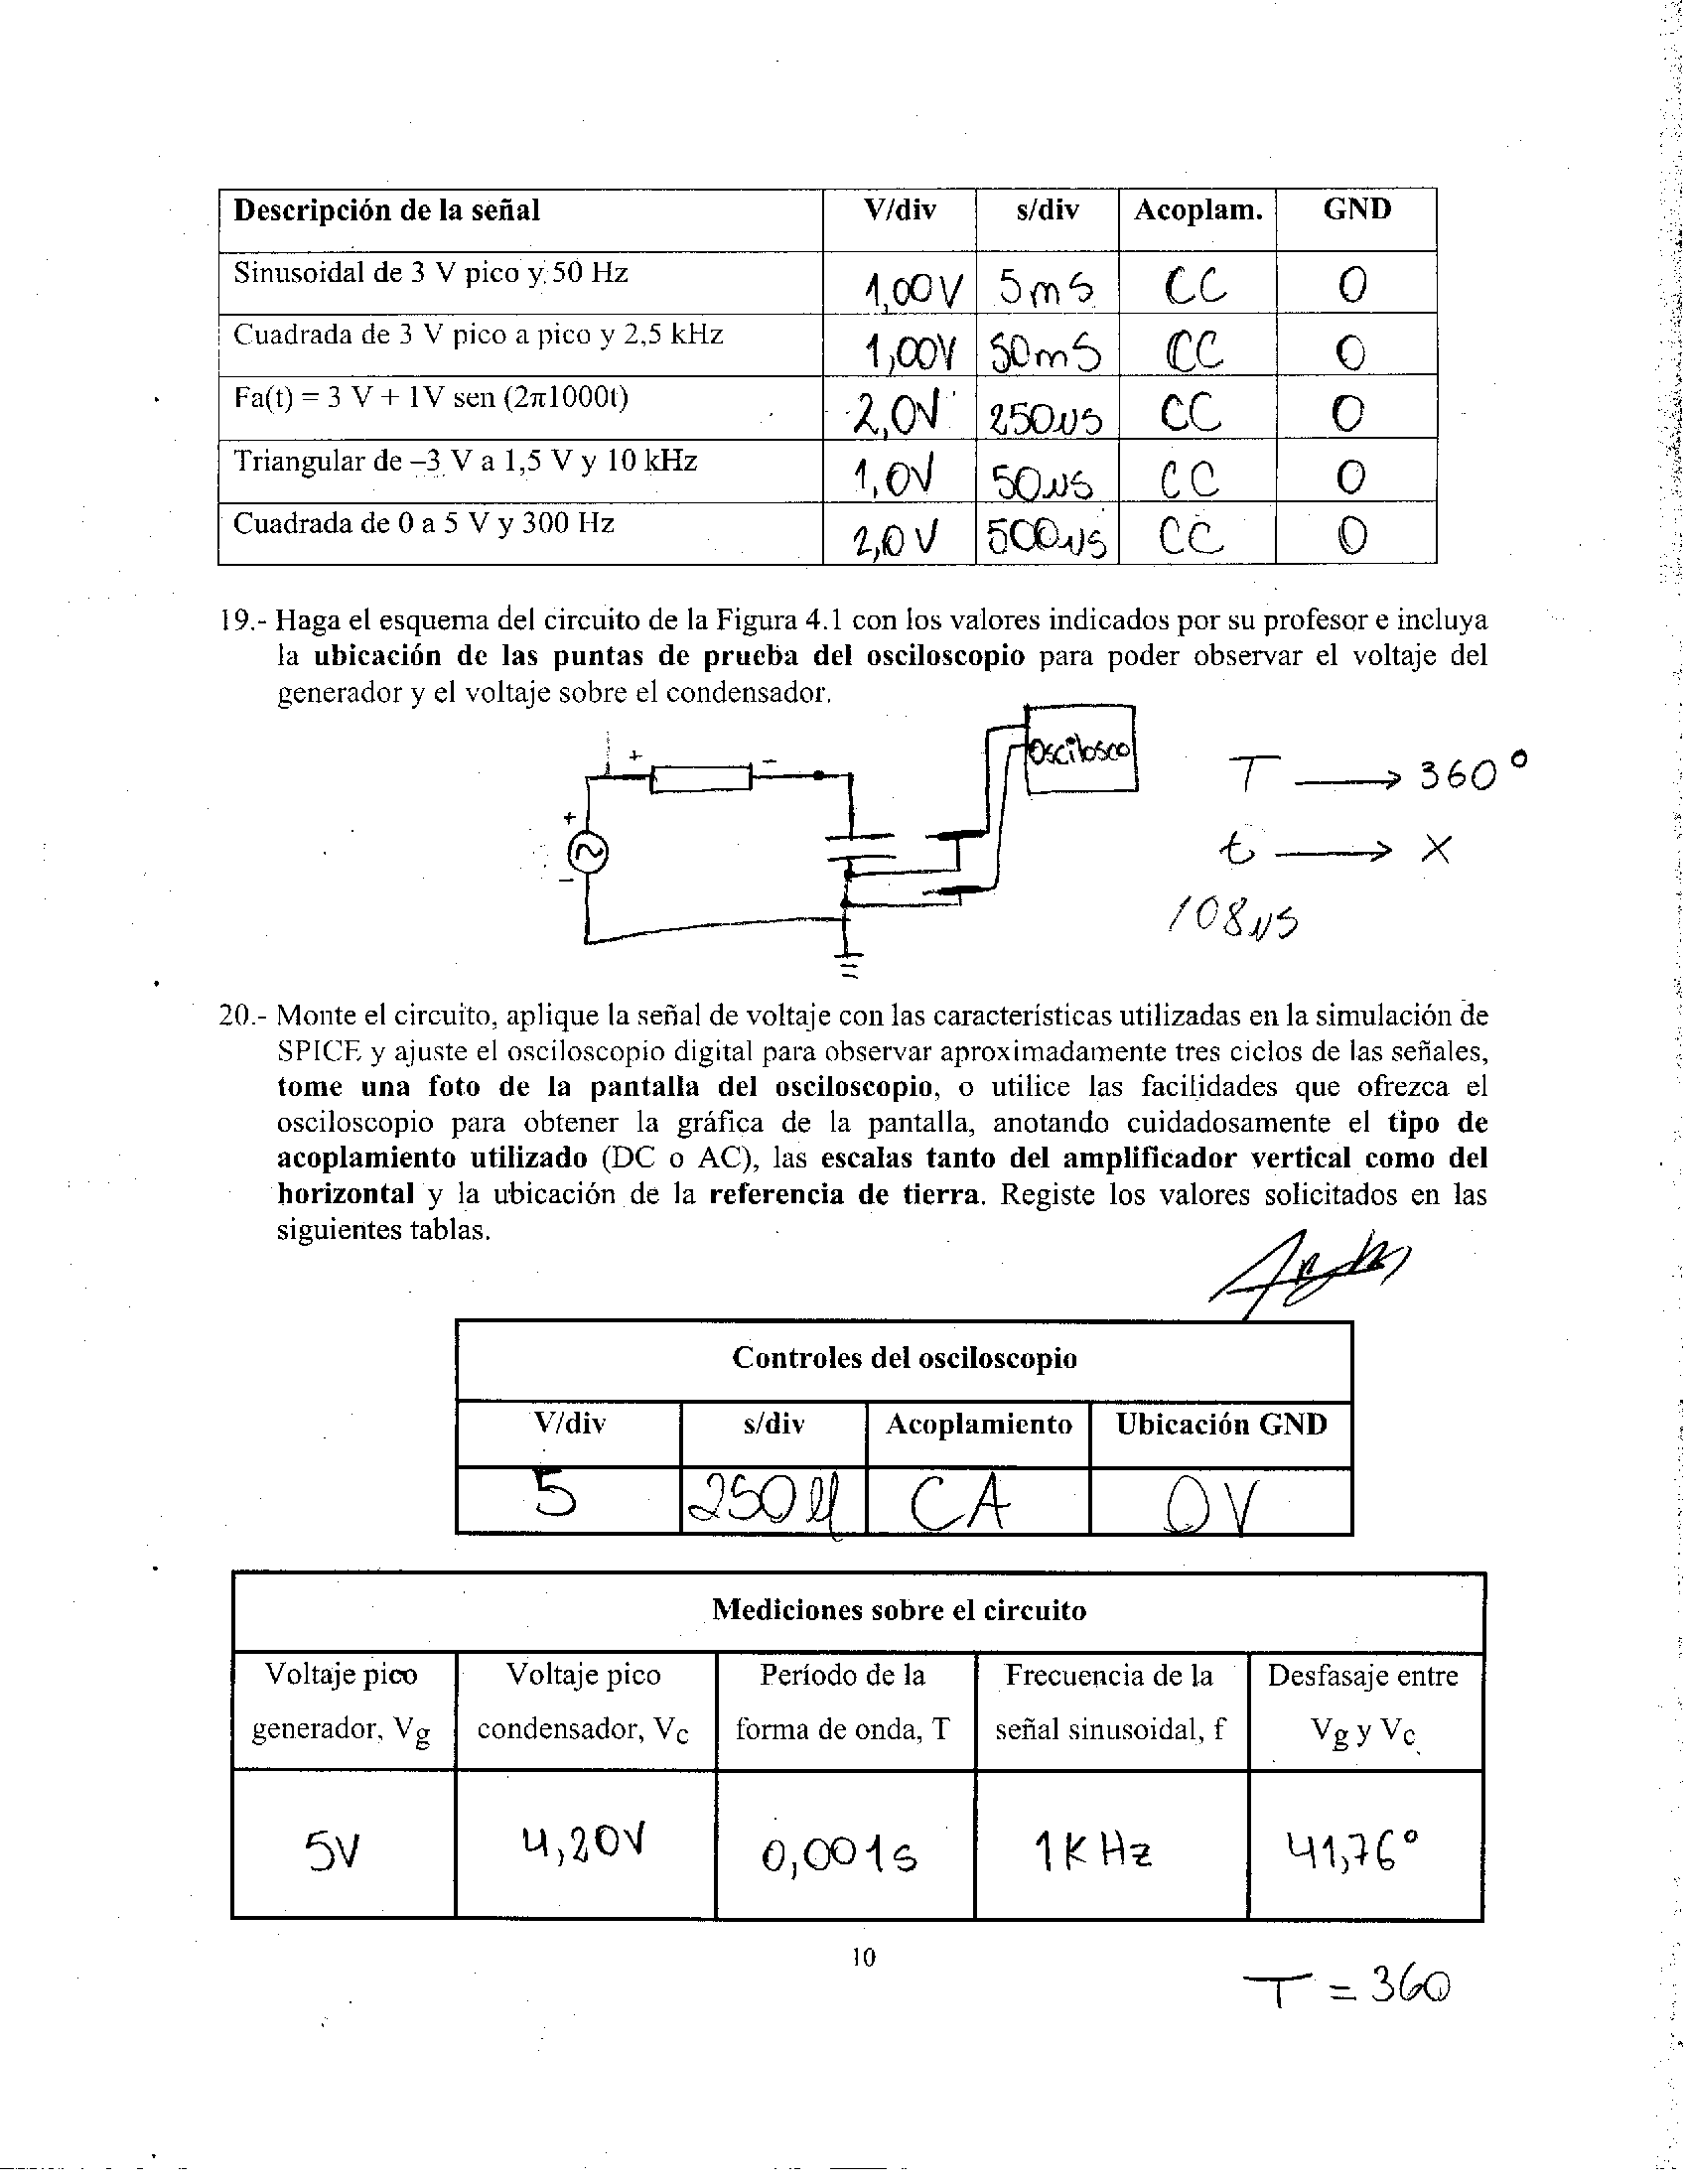 Descripción de la señal V/div s/div Acoplam. GND
Sinusoidal de 3 V pico y 50 Hz 1,00V 5mS CC 0
Cuadrada de 3 V pico a pico y 2,5 kHz 1,00V 50mS CC 0
Fa(t) = 3 V + 1V sen (2π1000t) 2,0V 250us CC 0
Triangular de –3 V a 1,5 V y 10 kHz 1,0V 50us CC 0
Cuadrada de 0 a 5 V y 300 Hz 2,0V 500us CC 0
19.- Haga el esquema del circuito de la Figura 4.1 con los valores indicados por su profesor e incluya
la ubicación de las puntas de prueba del osciloscopio para poder observar el voltaje del
generador y el voltaje sobre el condensador.
+ -
Oscilosco
+
-
T → 360°
t → X
108us
20.- Monte el circuito, aplique la señal de voltaje con las características utilizadas en la simulación de
SPICE y ajuste el osciloscopio digital para observar aproximadamente tres ciclos de las señales,
tome una foto de la pantalla del osciloscopio, o utilice las facilidades que ofrezca el
osciloscopio para obtener la gráfica de la pantalla, anotando cuidadosamente el tipo de
acoplamiento utilizado (DC o AC), las escalas tanto del amplificador vertical como del
horizontal y la ubicación de la referencia de tierra. Registe los valores solicitados en las
siguientes tablas.
Controles del osciloscopio
V/div s/div Acoplamiento Ubicación GND
5 250 µ CA 0V
Mediciones sobre el circuito
Voltaje pico Voltaje pico Período de la Frecuencia de la Desfasaje entre
generador, Vg condensador, Vc forma de onda, T señal sinusoidal, f Vg y Vc
5V 4,20V 0,001s 1KHz 41,76°
10
T = 360